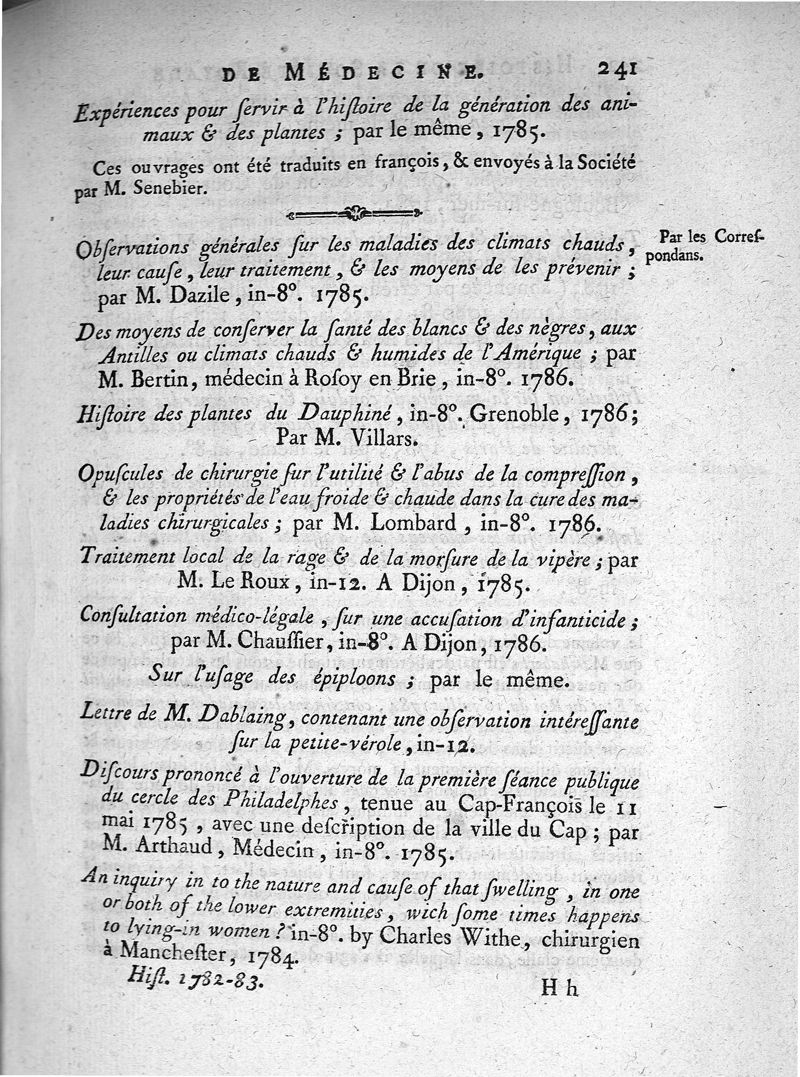 DE MÉDECINE. 241
Expériences pour ſervir à l'hiſtoire de la génération des ani-
maux & des plantes ; par le même, 1785.
Ces ouvrages ont été traduits en françois, & envoyés à la Société
par M. Senebier.
Obſervations générales ſur les maladies des climats chauds,
leur cauſe, leur traitement, & les moyens de les prévenir ;
par M. Dazile, in-8°. 1785.
Par les Correſ-
pondans.
Des moyens de conſerver la ſanté des blancs & des nègres, aux
Antilles ou climats chauds & humides de l'Amérique ; par
M. Bertin, médecin à Roſoy en Brie, in-8°. 1786.
Hiſtoire des plantes du Dauphiné, in-8°. Grenoble, 1786;
Par M. Villars.
Opuſcules de chirurgie ſur l'utilité & l'abus de la compreſſion,
& les propriétés de l'eau froide & chaude dans la cure des ma-
ladies chirurgicales ; par M. Lombard, in-8°. 1786.
Traitement local de la rage & de la morſure de la vipère ; par
M. Le Roux, in-12. A Dijon, 1785.
Conſultation médico-légale, ſur une accuſation d'infanticide ;
par M. Chauſſier, in-8°. A Dijon, 1786.
Sur l'uſage des épiploons ; par le même.
Lettre de M. Dablaing, contenant une obſervation intéreſſante
ſur la petite-vérole, in-12.
Diſcours prononcé à l'ouverture de la première ſéance publique
du cercle des Philadelphes, tenue au Cap-François le 11
mai 1785, avec une deſcription de la ville du Cap ; par
M. Arthaud, Médecin, in-8°. 1785.
An inquiry in to the nature and cauſe of that ſwelling, in one
or both of the lower extremities, wich ſome times happens
to lying-in women ? in-8°. by Charles Withe, chirurgien
à Mancheſter, 1784.
Hiſt. 1782-83. H h